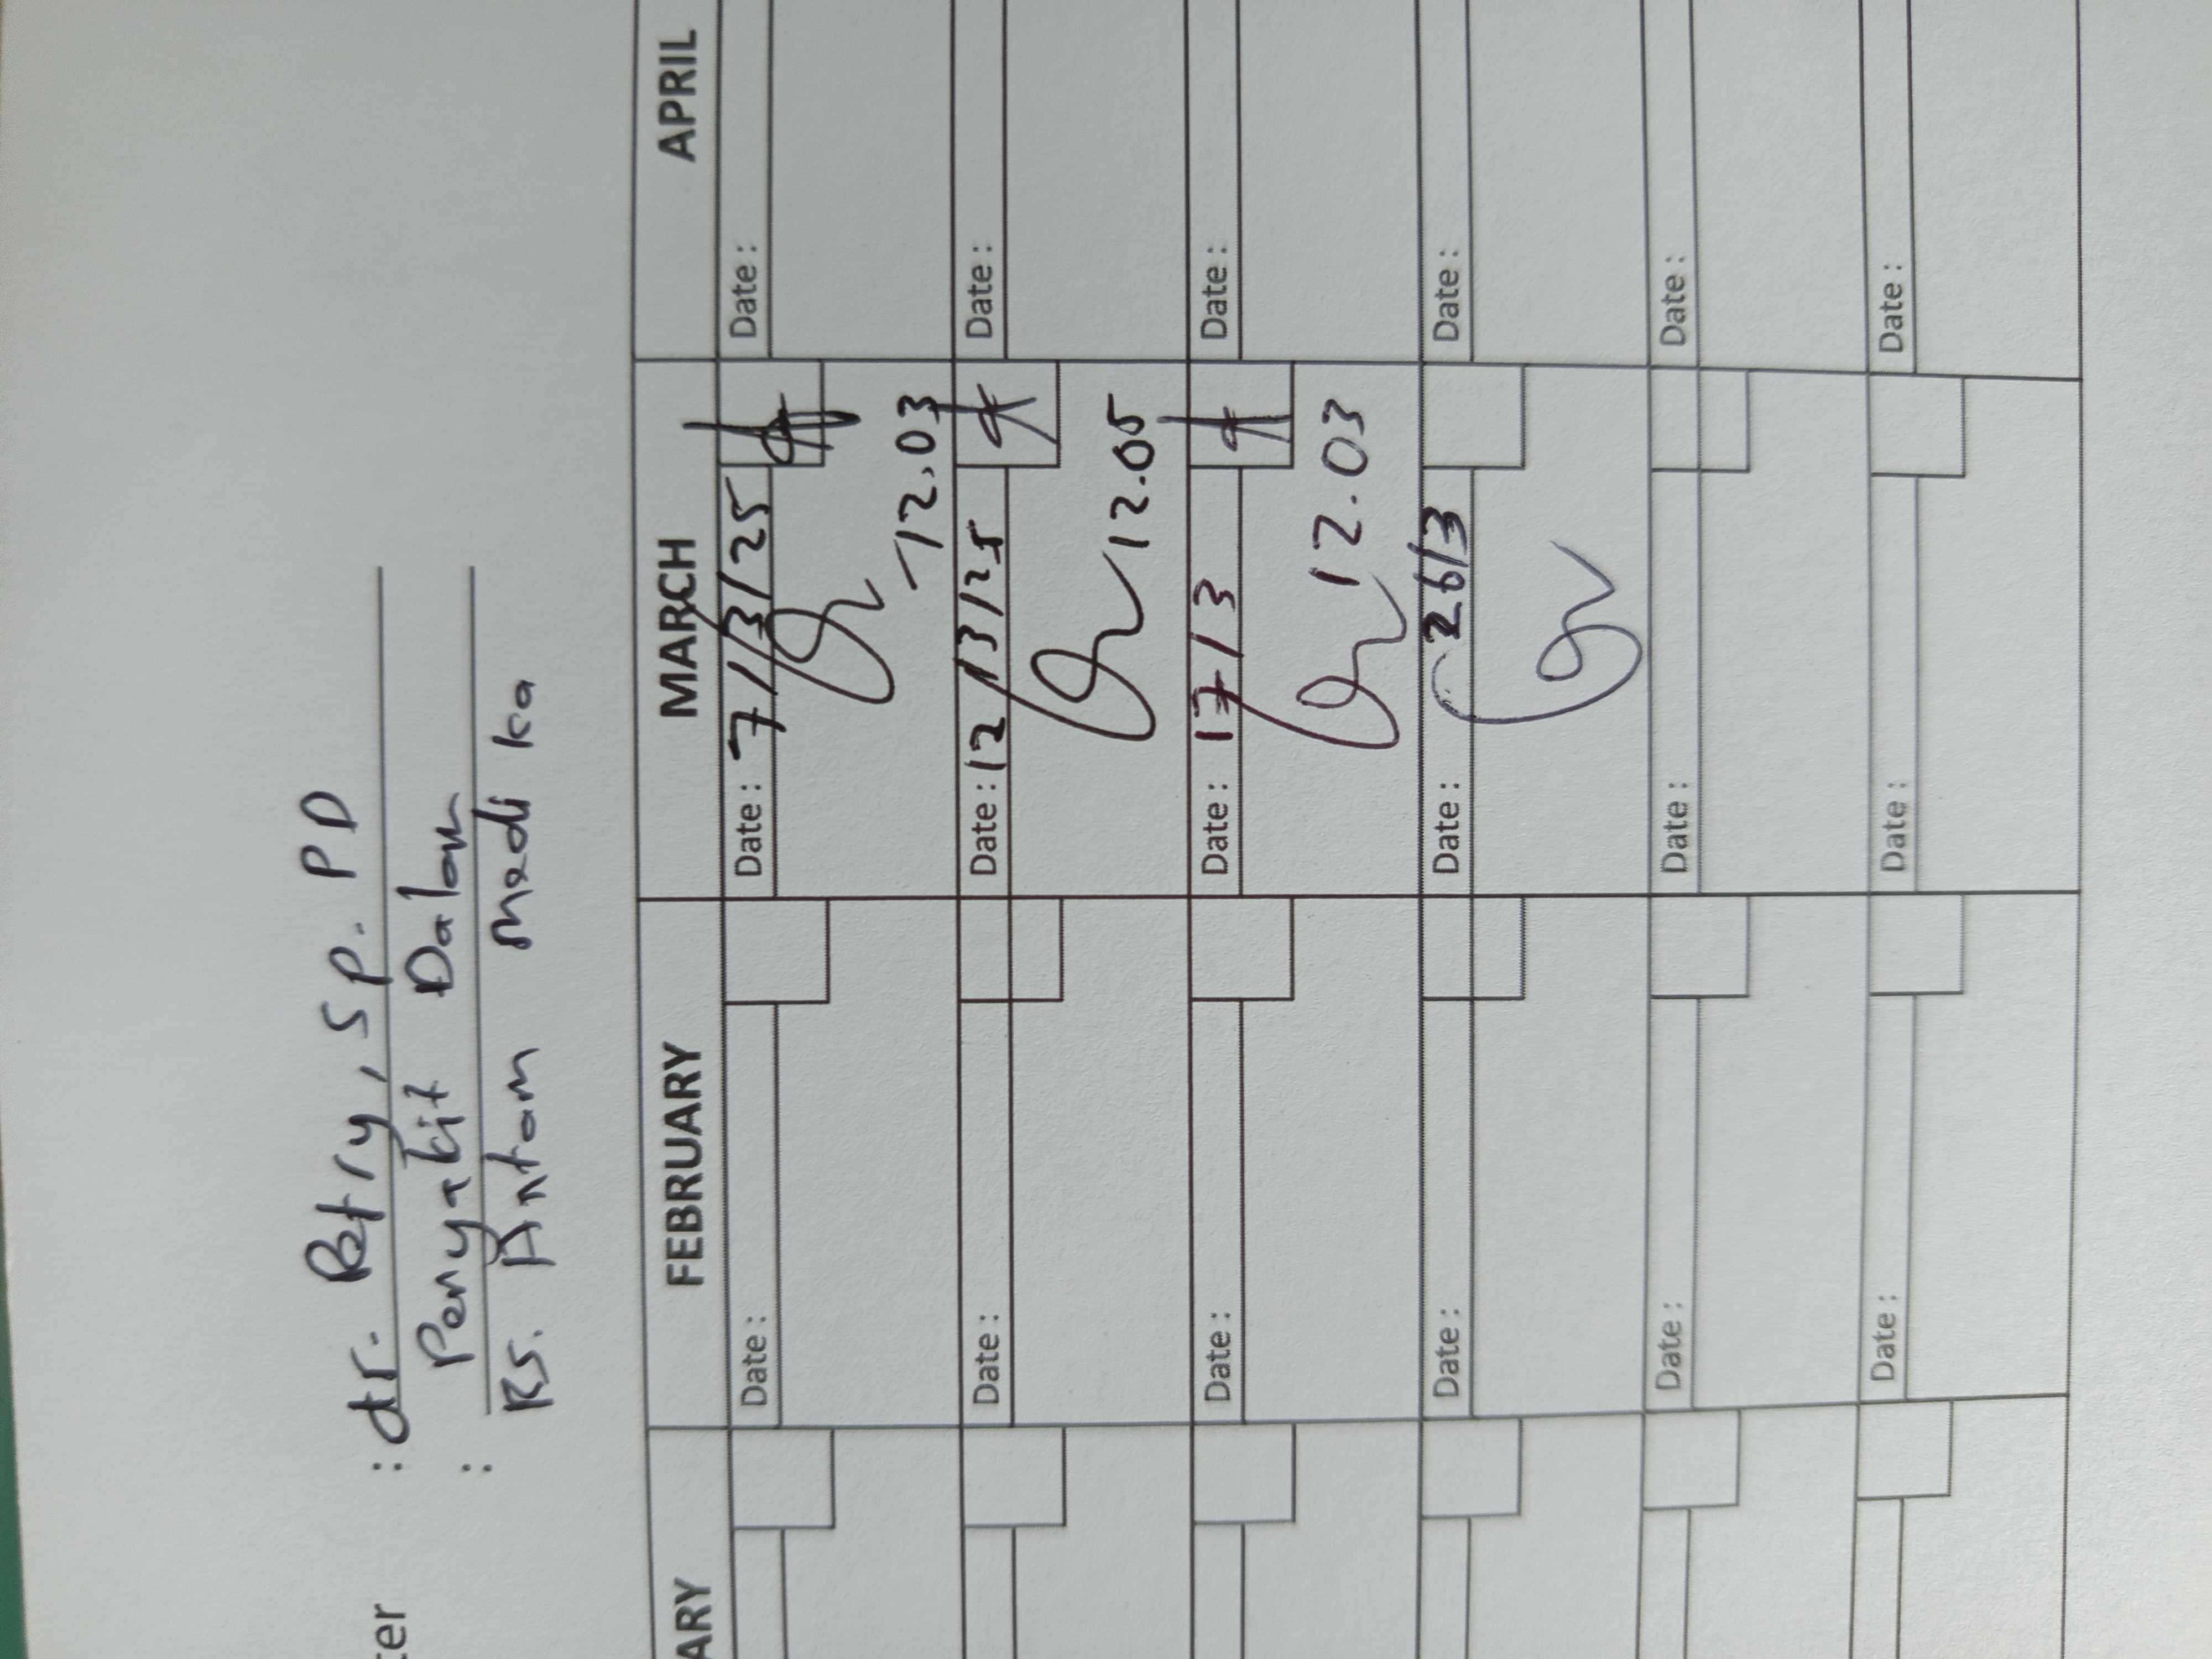 : dr. Petry, SP. PD
ter
: Penyakit Dalam
RS. Antam Medika
ARY FEBRUARY MARCH APRIL
Date : Date : 7/3/25 Date :
12.03
Date : Date : 12/3/25 Date :
12.05
Date : Date : 17/3 Date :
12.03
Date : Date : 26/3 Date :
Date : Date : Date :
Date : Date : Date :